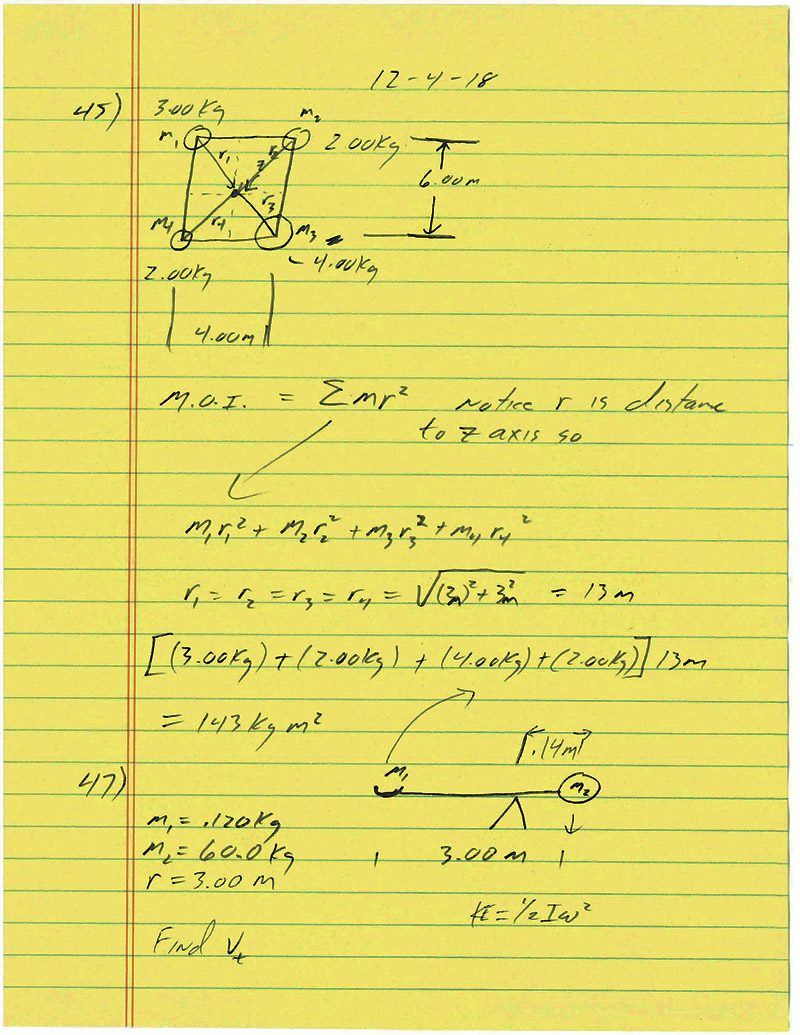 12-4-18
45) 3.00Kg m2
m1 2.00Kg
r1 r2 z
6.00m
r4 r3
M4 M3
4.00Kg
2.00Kg
4.00m
M.O.I. = Σmr² Notice r is distance
to z axis so
M1r1² + M2r2² + M3r3² + M4r4²
r1 = r2 = r3 = r4 = = 13m
[(3.00Kg) + (2.00Kg) + (4.00Kg) + (2.00Kg)] 13m
= 143 Kg m²
.14m
47) M1 M2
m1 = .120Kg
M2 = 60.0 Kg 3.00 m
r = 3.00 m
KE = 1/2 Iω²
Find Vt